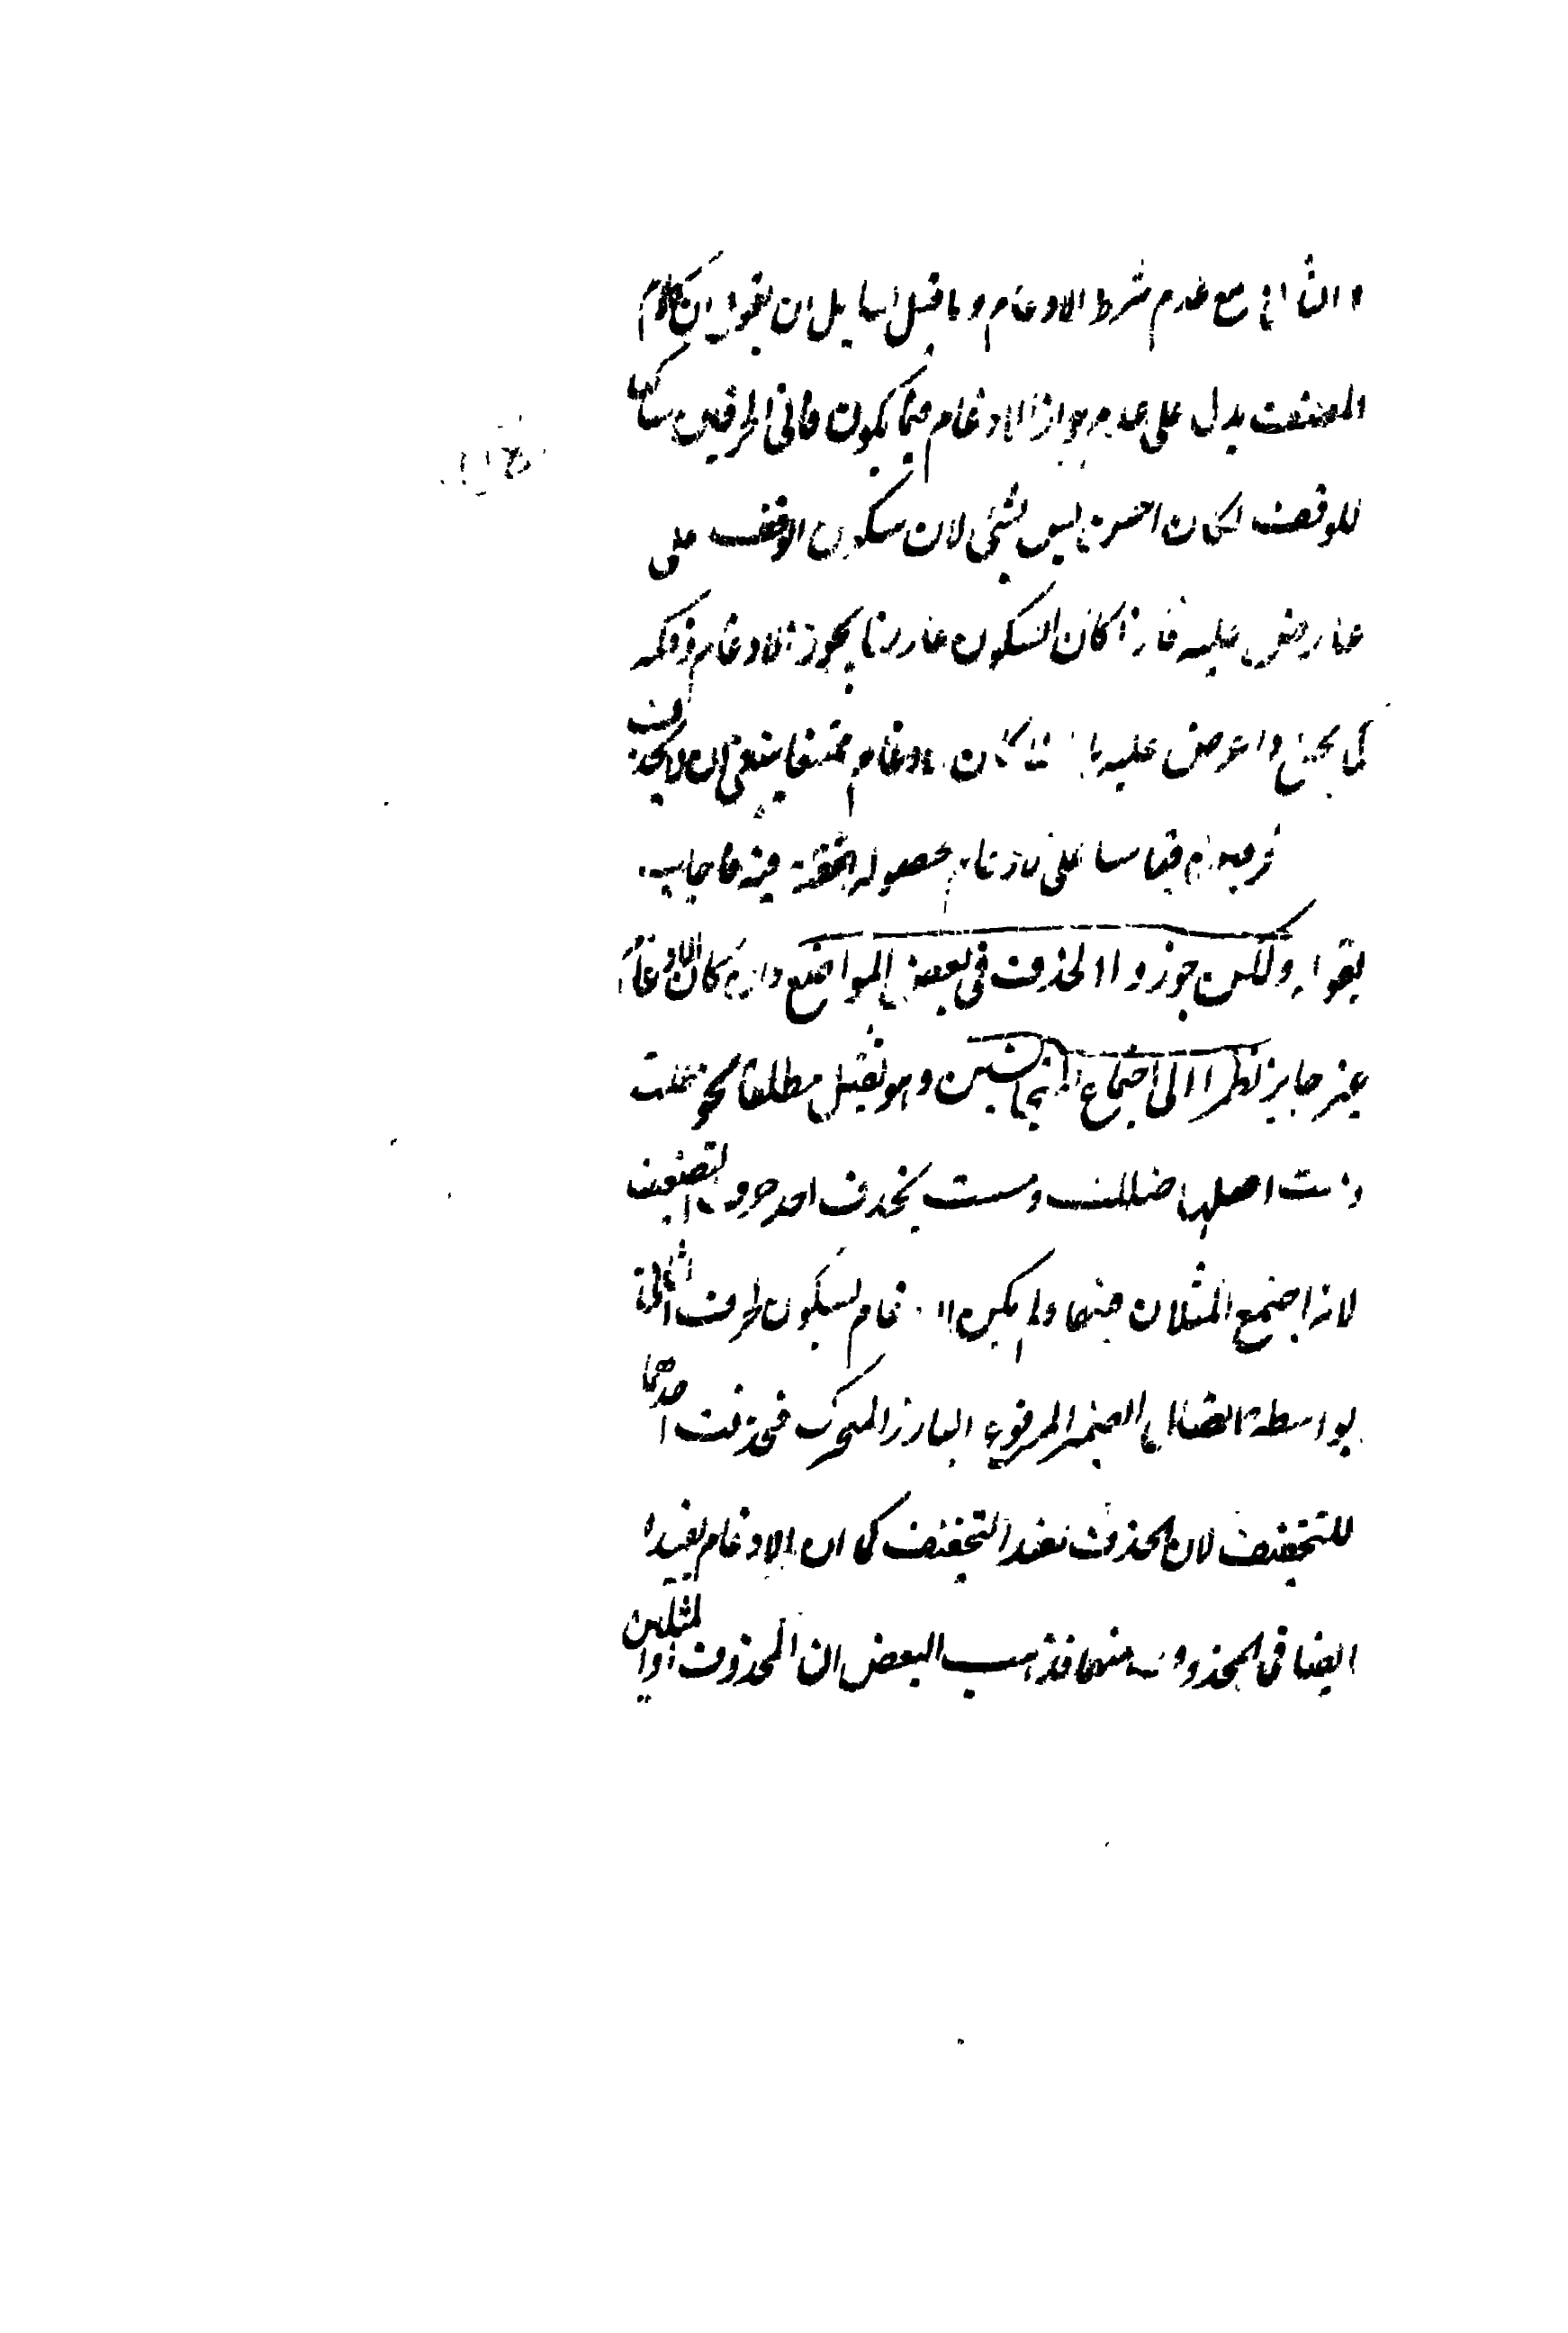 والثاني مع عدم شرط الادغام وما قيل لسايل ان يقول ان كلام
المصنف يدل على عدم جواز الادغام فيما يكون ثاني الحرفين ساكنا
للوقف لكان احسن ليس بشئ لان سكون الوقف على
عارض عليه فاذا كان السكون عارضا يجوز الادغام وذكره
كما يجئ واعترض عليه بانه لما كان الادغام ممتنعا ينبغي ان لا يحذف
قياسا على الادغام لحصول الخفة فيه فاجاب
بقوله ولكن جوزوا الحذف في بعض المواضع وان كان الادغام
غير جايز نظرا الى اجتماع المتجانسين وهو ثقيل مطلقا نحو ظلت
ومست اصلها ظللت ومسست بحذف احد حروف التضعيف
لانه اجتمع المثلان فيهما ولم يكن الادغام لسكون الحرف الثاني
بواسطة اتصال الضمير المرفوع البارز المتحرك فحذفت احدهما
للتخفيف لان الحذف يفيد التخفيف كما ان الادغام يفيد
ايضا في المحذوف منهما فذهب البعض ان المحذوف اول المثلين